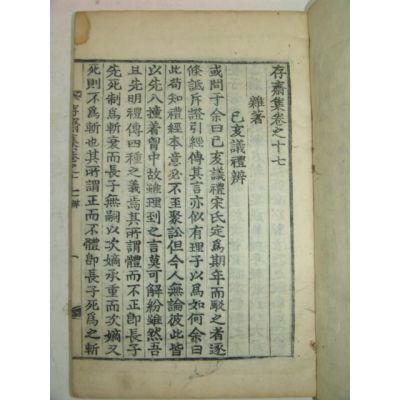 存齋集卷之十七
雜著
己亥議禮辨
或問于余曰己亥議禮宋氏定爲期年而駁之者逐
條詆斥證引經傳其言亦似有理子以爲如何余曰
此苟知禮經本意必不至聚訟但今人無論彼此皆
以先入撞着胷中故雖理到之言莫可解紛雖然吾
且先明禮四種之義焉其所謂正而不體而不正卽長子
先死制爲斬衰而長子無嗣以次嫡承重而次嫡又
死則不爲斬也其所謂正而不體卽長子死爲之斬
存齋集卷之十七 辨
一